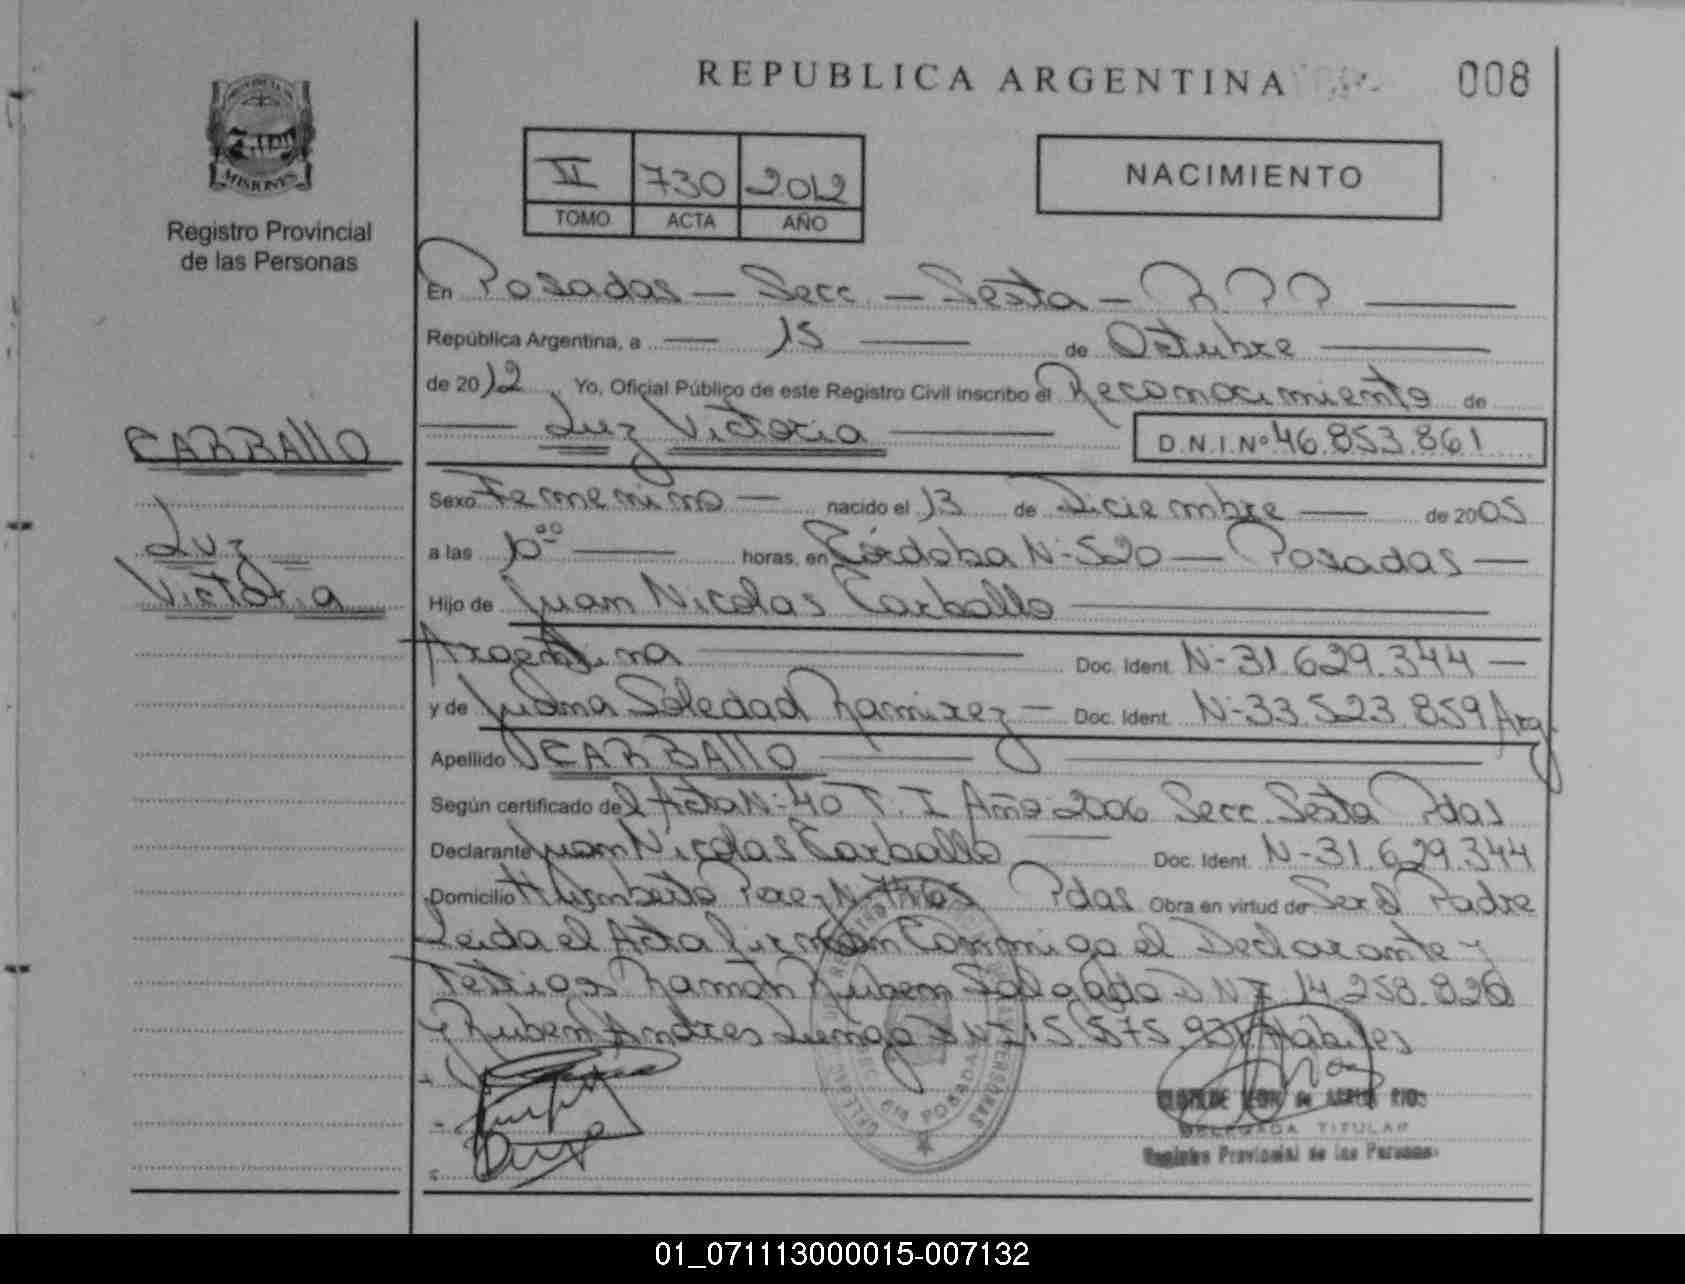 REPUBLICA ARGENTINA
008
MISIONES
Registro Provincial
de las Personas
II 730 2012
TOMO ACTA AÑO
NACIMIENTO
En Posadas - Secc. - Sexta - R.P.P.
República Argentina, a 15 de Octubre
de 2012 Yo, Oficial Público de este Registro Civil inscribo el Reconocimiento de
Luz Victoria D.N.I.Nº 46.853.861
CARBALLO
Luz
Victoria
Sexo Femenino nacido el 13 de Diciembre de 2005
a las 10 00 horas, en Córdoba N-520 - Posadas
Hijo de Juan Nicolas Carballo
Argentina Doc. Ident. N-31.629.344
y de Juana Soledad Ramirez - Doc. Ident. N-33.523.859 Arg
Apellido CARBALLO
Según certificado del Acta N-40 T. I Año 2006 Secc. Sexta Pdas
Declarante Juan Nicolas Carballo Doc. Ident. N-31.629.344
Domicilio Humberto Perez N- Pdas Obra en virtud de Ser el Padre
Leida el Acta firman Conmigo el Declarante y
Testigos Ramón Ruben Salgado DNI 14.258.820
y Ruben Andres DNI 15.575.931 Habiles
SECC 6ta POSADAS
DELEGADA TITULAR
Registro Provincial de las Personas
01_071113000015-007132